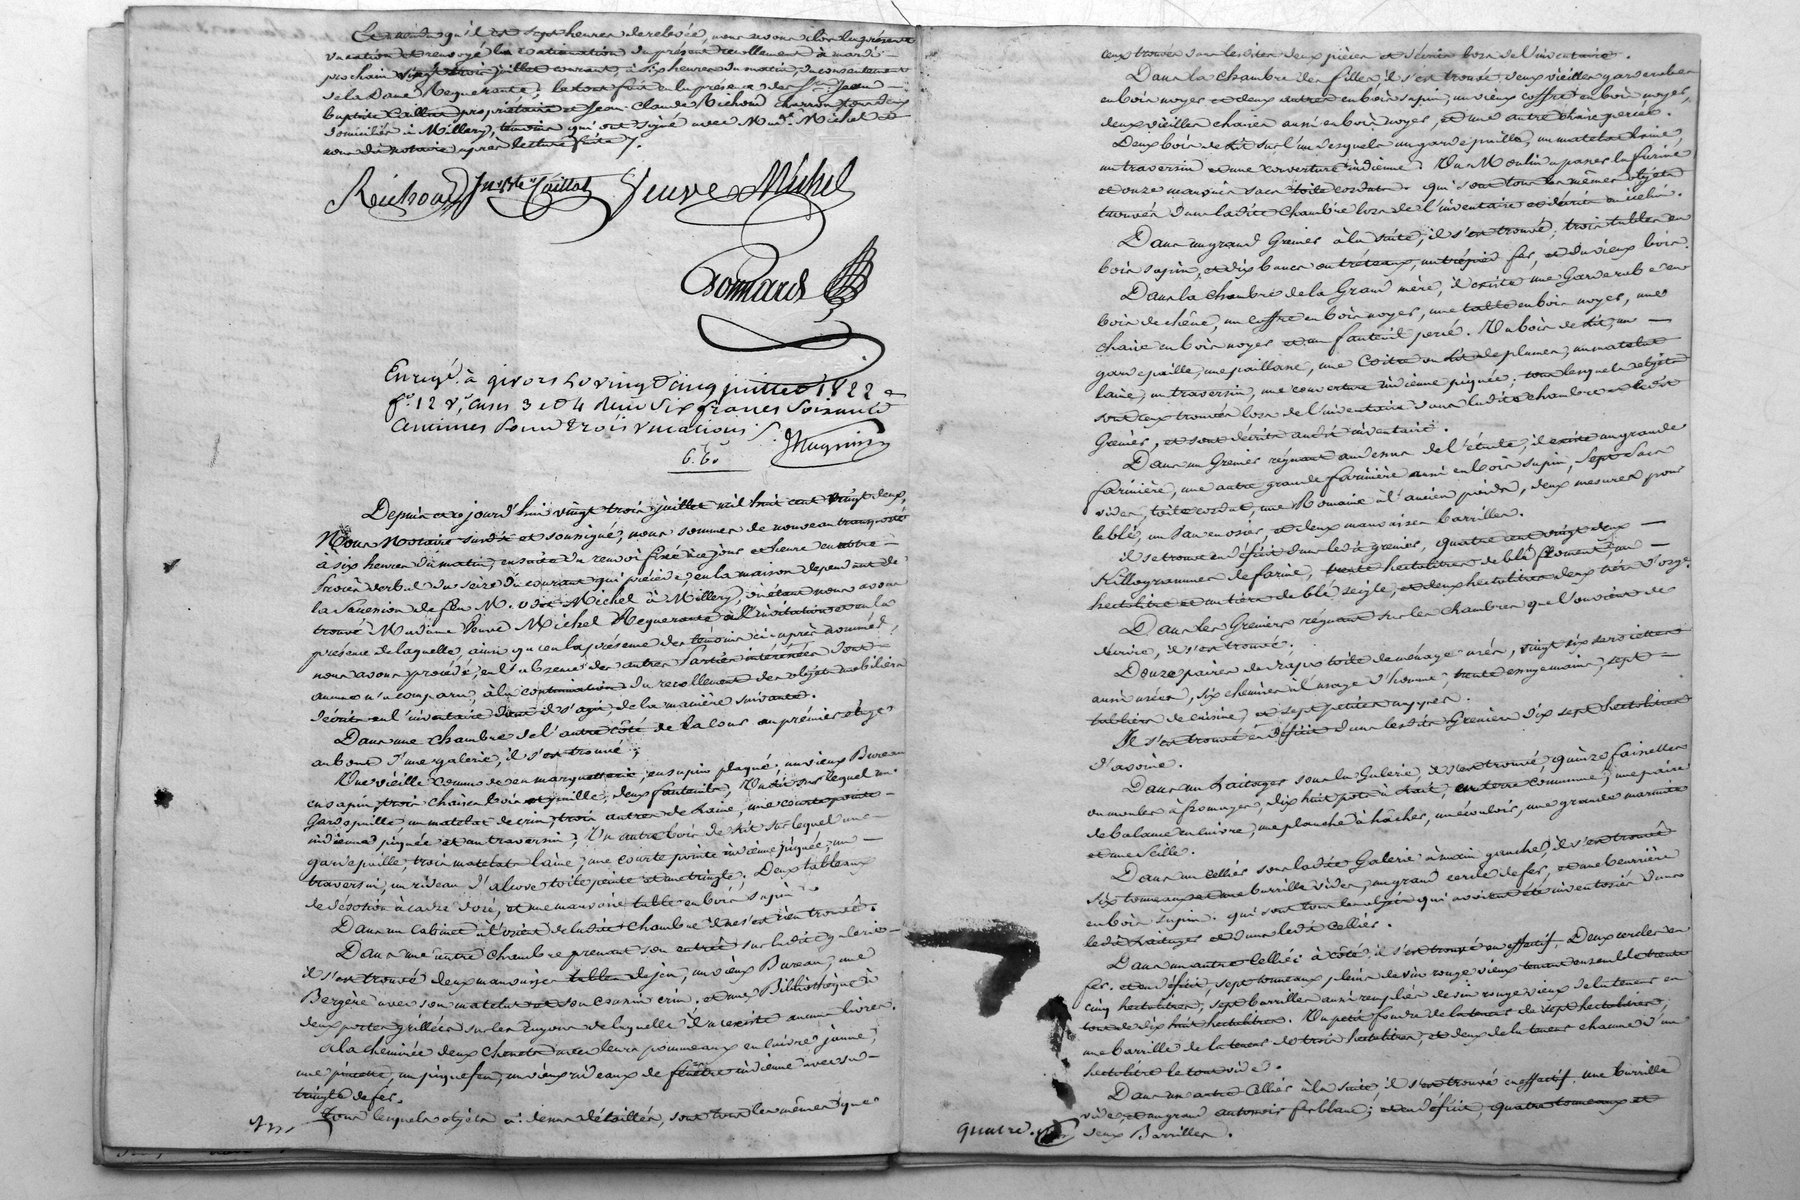 Et attendu qu'il est sept heures de relevée, nous avons clos la présente
vacation et renvoyé la continuation du présent recollement à mardi
prochain vingt trois juillet courant, à six heures du matin, du consentement
de la Dame Requerante, le tout fait en la présence des Srs Jean
baptiste Caillot propriétaire et Jean Claude Richoud charron tous deux
domiciliés à Millery, témoins qui ont signé avec Made Michel et
nous dit notaire après lecture faite /.
Richoud Jn Bte Caillot Veuve Michel
Enrégé. à givors Le vingt cinq juillet 1822
fo. 12 vo, cases 3 et 4 Reçu Six francs Soixante
Centimes Pour trois vacations
6.60
Depuis ce jourd'hui vingt trois juillet mil huit cent vingt deux,
Nous Notaire susdit et soussigné, nous sommes de nouveau transporté
à six heures du matin, ensuite du renvoi fixé à ce jour et heure en notre
Procès verbal du seize du courant qui précède, en la maison dépendant de
la Succession de feu M. Michel à Millery, où étant nous avons
trouvé Madame Veuve Michel Requerante à l'invitation et en la
présence de laquelle, ainsi qu'en la présence des témoins ci-après nommés,
nous avons procédé, en l'absence des autres Parties intéressées dont
aucune n'a comparu, à la continuation du recollement des objets mobiliers
décrits en l'inventaire dont il s'agit, de la manière suivante.
Dans une chambre de l'autre côté de la cour au prémier étage
au bout d'une galerie, il s'est trouvé;
Une vieille commode en marquetterie, en sapin plaqué, un vieux Bureau
en sapin, trois chaises bois et paille, deux fauteuils, Un lit sur lequel un
Gardepaille, un matelat de crin, trois autres de Laine, une courtepointe
indienne piquée et un traversin; Un autre bois de Lit sur lequel une
gardepaille, trois matelats laine, une courte pointe indienne piquée, un
traversin, un rideau d'alcove toile peinte et une tringle. Deux tableaux
de dévotion à cadre doré, et une mauvaise table en bois sapin.
Dans un Cabinet à l'orient de ladite chambre il ne s'est rien trouvé.
Dans une autre chambre prenant son entrée sur ladite galerie
il s'est trouvé deux mauvaises tables de jeu, un vieux Bureau, une
Bergère avec son matelat et son coussin crin, et une Bibliothèque à
deux portes grillées sur les rayons de laquelle il n'existe aucuns livres.
à la cheminée deux chenets avec leurs pommeaux en cuivre jaune;
une pincette, un piquefeu, un vieux rideaux de fenêtre indienne avec sa
tringle de fer.
Tous lesquels objets ci-dessus détaillés, sont tous les mêmes que
ceux trouvés dans lesdites deux pièces et décrits lors de l'inventaire.
Dans la chambre des filles, il s'est trouvé, deux vieilles garderobes
en bois noyer et deux autres en bois sapin, un vieux coffre en bois noyer,
deux vieilles chaises aussi en bois noyer, et une autre chaise percée.
Deux bois de Lit sur l'un desquels un gardepaille, un matelat laine,
un traversin et une couverture indienne. Un Moulin à passer la farine
et onze mauvais sacs toile cordat. qui sont tous les mêmes objets
trouvés dans ladite chambre lors de l'inventaire et décrits en icelui.
Dans un grand Grenier à la suite, il s'est trouvé, trois tables en
bois sapin, et dix bancs ou tréteaux, un trépied fer, et du vieux bois.
Dans la chambre de la Grand mère, il existe une Garderobe en
bois de chêne, un coffre en bois noyer, une table en bois noyer, une
chaise en bois noyer et un fauteuil percé. Un bois de Lit, un
gardepaille, une paillasse, une Coitre ou Lit de plumes, un matelat
laine, un traversin, une couverture indienne piquée; tous lesquels objets
sont ceux trouvés lors de l'inventaire dans ladite chambre et ledit
Grenier, et sont décrits audit inventaire.
Dans un Grenier régnant au dessus de l'étude, il existe une grande
farinière, une autre grande farinière aussi en bois sapin, Sept Sacs
vides, toile cordat, une Romaine à l'ancien poids, deux mesures pour
le blé, un Van en osier, et deux mauvaises barrilles.
il se trouve en déficit dans ledit grenier, quatre cent vingt deux
Killogrammes de farine, trente hectolitres de blé froment, un
hectolitre et un tiers de blé seigle, et deux hectolitres deux tiers d'orge.
Dans les Greniers régnant sur les chambres que l'on vient de
décrire, il s'est trouvé;
Douze paires de draps toile de ménage usés, vingt six serviettes
aussi usées, six chemises à l'usage d'homme, trente essuyemains, sept
tabliers de cuisine, et sept petites nappes.
Il s'est trouvé en déficit dans lesdits Greniers dix sept hectolitres
d'avoine.
Dans un Laitager sous la Galerie, il s'est trouvé, quinze faisselles
ou moules à fromages, dix huit pots à lait, en terre commune, une paire
de balance en cuivre, une planche à hâcher, un évouloir, une grande marmite
et une Seille.
Dans un Cellier sous ladite Galerie à main gauche, il s'est trouvé
Six tonneaux et une barrille vides, un grand cercle de fer, et une beurrière
en bois sapin. qui sont tous les objets qui avoient été inventoriés dans
ledit Laitager et dans ledit Cellier.
Dans un autre Cellier à côté, il s'est trouvé en effectif. Deux cercles en
fer. et en déficit, sept tonneaux pleins de vin rouge vieux tenant ensemble trente
cinq hectolitres, sept barrilles aussi remplies de vin rouge vieux de la teneur en
tout de dix huit hectolitres. Un petit foudre de la teneur de sept hectolitres,
une barrille de la teneur de trois hectolitres, et deux de la teneur chacune d'un
hectolitre le tout vide.
Dans un autre Cellier à la suite, il s'est trouvé en effectif. Une barrille
vide, et un grand entonnoir ferblanc; et en déficit, quatre tonneaux et
deux Barrilles.
quatre.